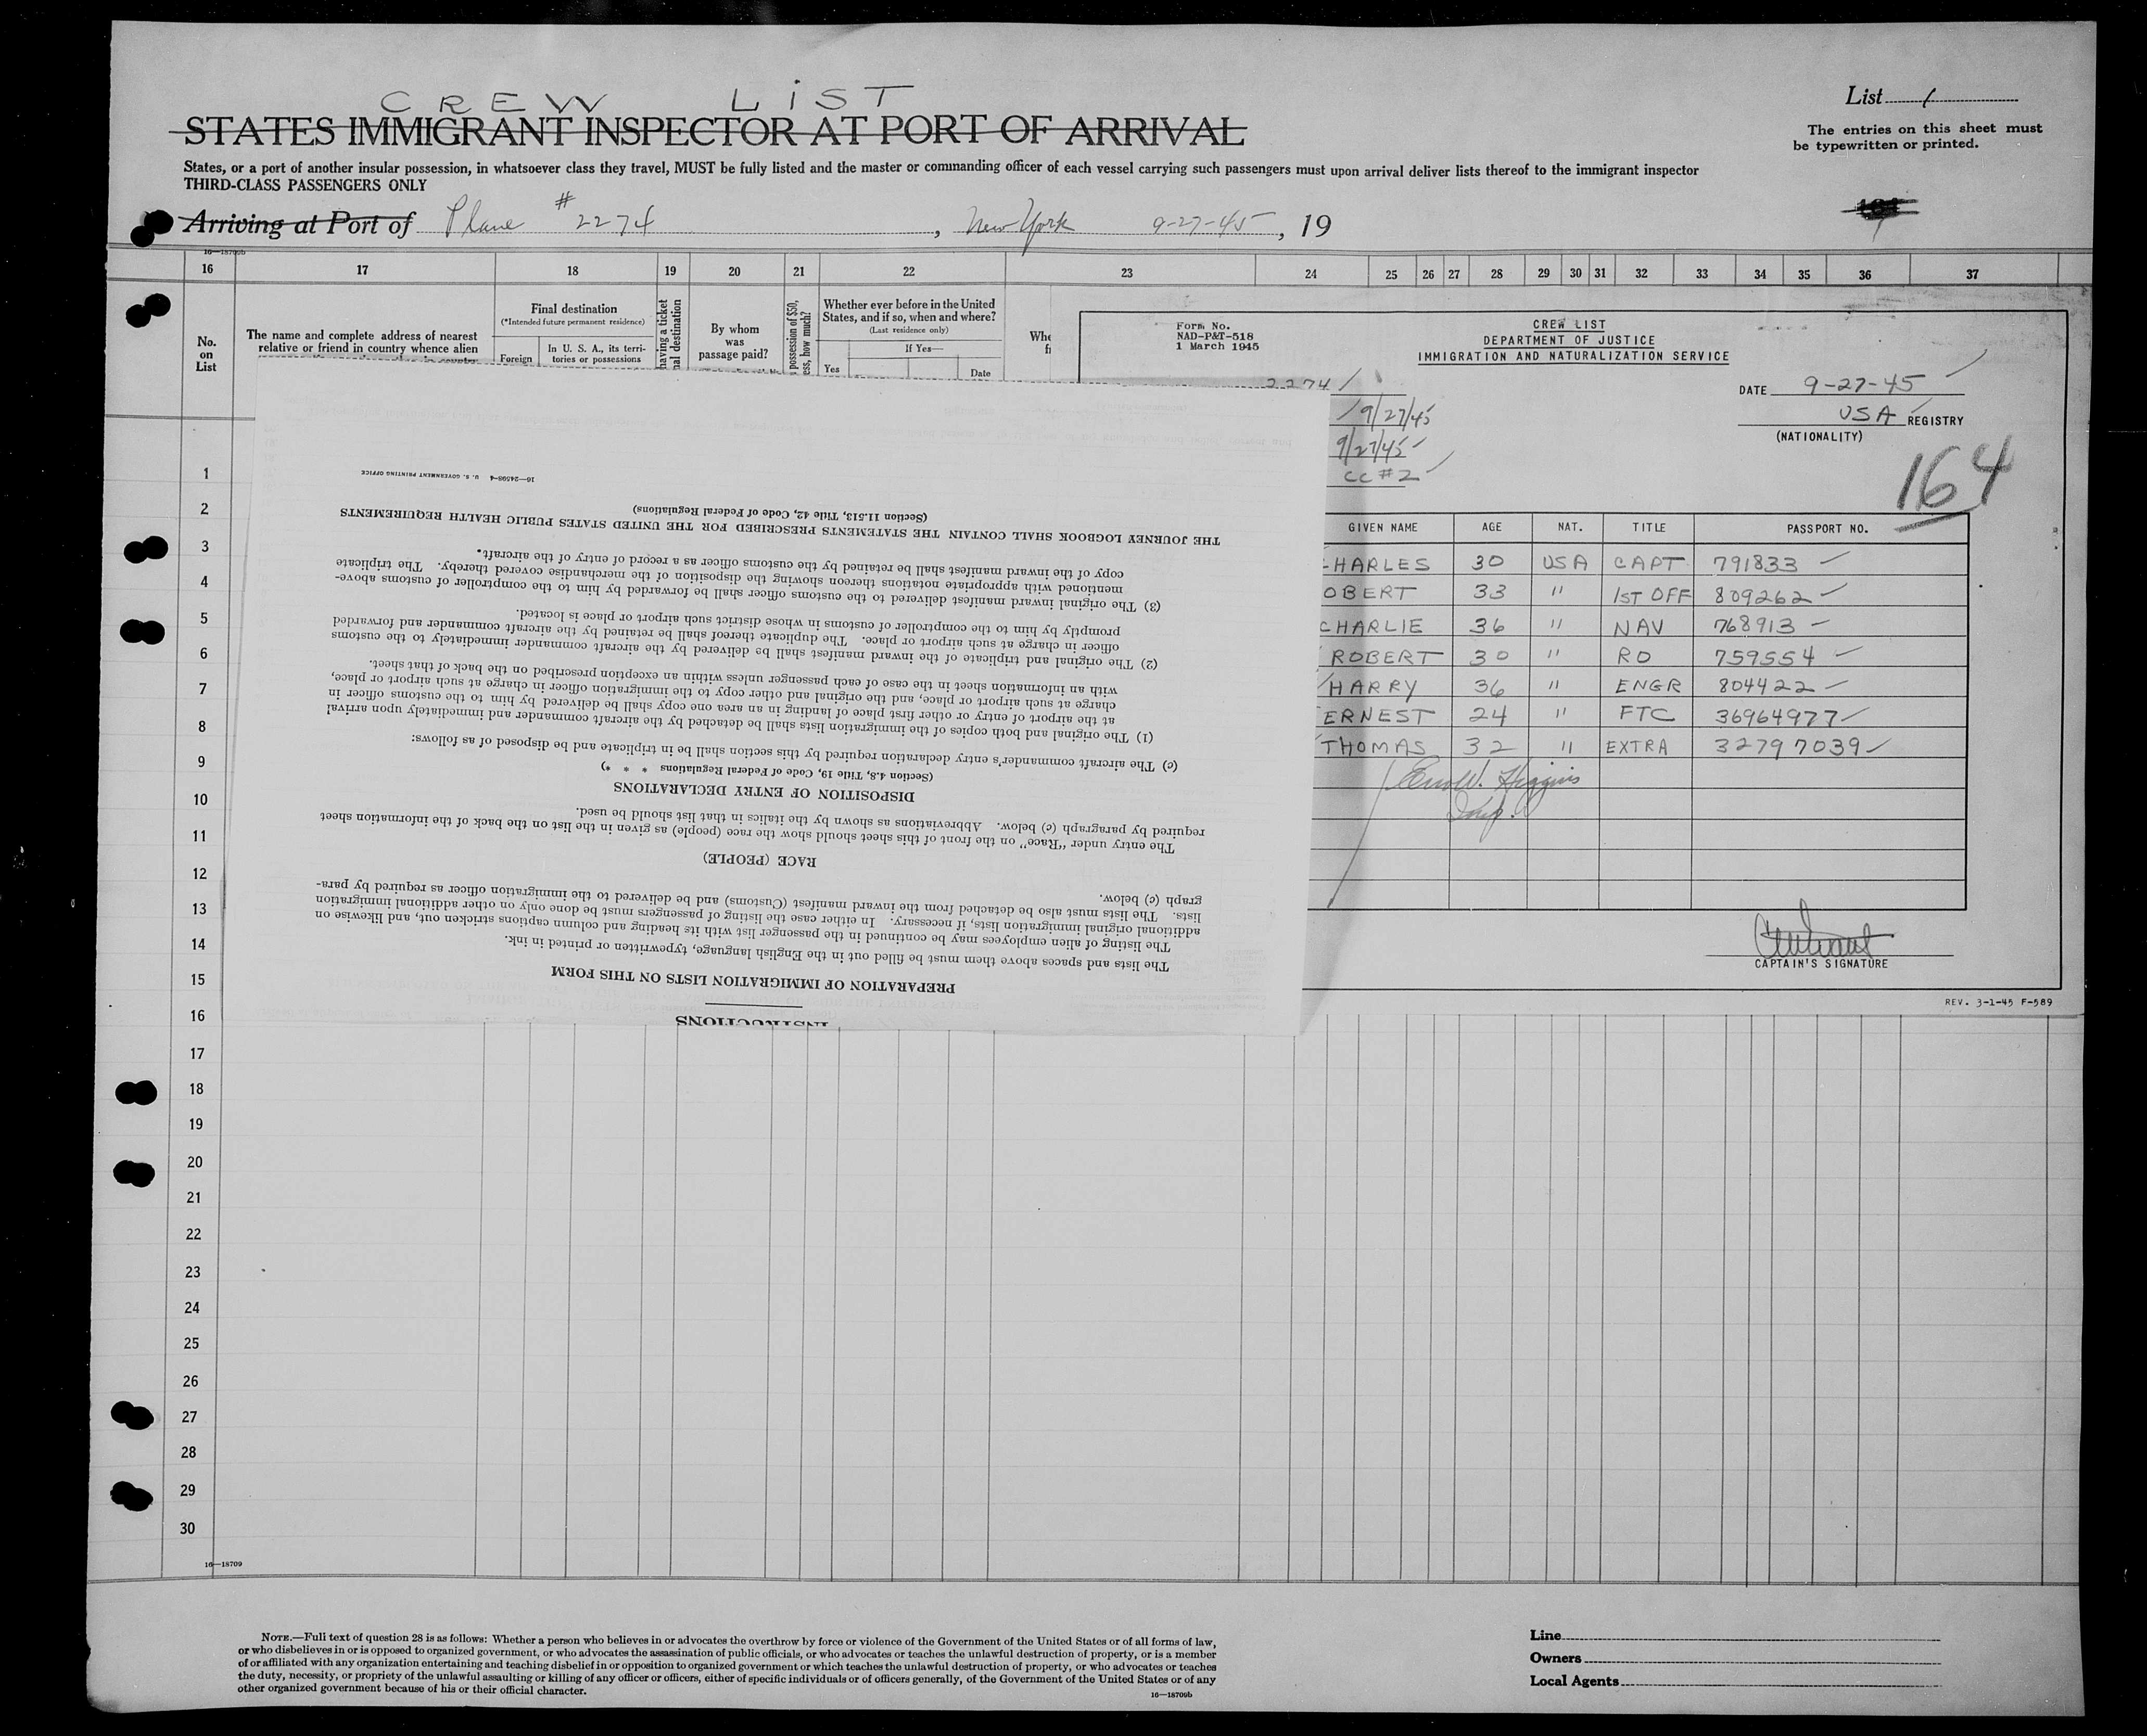 CREW LIST
STATES IMMIGRANT INSPECTOR AT PORT OF ARRIVAL
List 1
The entries on this sheet must
be typewritten or printed.
States, or a port of another insular possession, in whatsoever class they travel, MUST be fully listed and the master or commanding officer of each vessel carrying such passengers must upon arrival deliver lists thereof to the immigrant inspector
THIRD-CLASS PASSENGERS ONLY
Arriving at Port of Plane #2274, New York 9-27-45, 19
16—18709b
16 17 18 19 20 21 22 23 24 25 26 27 28 29 30 31 32 33 34 35 36 37
No.
on
List
The name and complete address of nearest
relative or friend in country whence alien
Final destination
(*Intended future permanent residence)
Foreign
In U. S. A., its terri-
tories or possessions
having a ticket
destination
By whom
was
passage paid?
possession of $50,
how much?
Whether ever before in the United
States, and if so, when and where?
(Last residence only)
If Yes—
Yes
Date
Form No.
NAD-P&T-518
1 March 1945
CREW LIST
DEPARTMENT OF JUSTICE
IMMIGRATION AND NATURALIZATION SERVICE
2274
DATE 9-27-45
9/27/45
USA REGISTRY
(NATIONALITY)
9/27/45
CC #2
164
GIVEN NAME AGE NAT. TITLE PASSPORT NO.
HARLES 30 USA CAPT 791833
OBERT 33 " 1ST OFF 809262
CHARLIE 36 " NAV 768913
ROBERT 30 " RO 759554
HARRY 36 " ENGR 804422
ERNEST 24 " FTC 36964977
THOMAS 32 " EXTRA 32797039
Higgins
Insp.
CAPTAIN'S SIGNATURE
REV. 3-1-45 F-589
INSTRUCTIONS
PREPARATION OF IMMIGRATION LISTS ON THIS FORM
The lists and spaces above them must be filled out in the English language, typewritten or printed in ink.
The listing of alien employees may be continued in the passenger list with its heading and column captions stricken out, and likewise on
additional original immigration lists, if necessary. In either case the listing of passengers must be done only on other additional immigration
lists. The lists must also be detached from the inward manifest (Customs) and be delivered to the immigration officer as required by para-
graph (c) below.
RACE (PEOPLE)
The entry under "Race" on the front of this sheet should show the race (people) as given in the list on the back of the information sheet
required by paragraph (c) below. Abbreviations as shown by the italics in that list should be used.
DISPOSITION OF ENTRY DECLARATIONS
(Section 4.8, Title 19, Code of Federal Regulations * * *)
(c) The aircraft commander's entry declaration required by this section shall be in triplicate and be disposed of as follows:
(1) The original and both copies of the immigration lists shall be detached by the aircraft commander and immediately upon arrival
at the airport of entry or other first place of landing in an area one copy shall be delivered by him to the customs officer in
charge at such airport or place, and the original and other copy to the immigration officer in charge at such airport or place,
with an information sheet in the case of each passenger unless within an exception prescribed on the back of that sheet.
(2) The original and triplicate of the inward manifest shall be delivered by the aircraft commander immediately to the customs
officer in charge at such airport or place. The duplicate thereof shall be retained by the aircraft commander and forwarded
promptly by him to the comptroller of customs in whose district such airport or place is located.
(3) The original inward manifest delivered to the customs officer shall be forwarded by him to the comptroller of customs above-
mentioned with appropriate notations thereon showing the disposition of the merchandise covered thereby. The triplicate
copy of the inward manifest shall be retained by the customs officer as a record of entry of the aircraft.
THE JOURNEY LOGBOOK SHALL CONTAIN THE STATEMENTS PRESCRIBED FOR THE UNITED STATES PUBLIC HEALTH REQUIREMENTS
(Section 11.513, Title 42, Code of Federal Regulations)
16—24598-4 U. S. GOVERNMENT PRINTING OFFICE
1
2
3
4
5
6
7
8
9
10
11
12
13
14
15
16
17
18
19
20
21
22
23
24
25
26
27
28
29
30
16—18709
NOTE.—Full text of question 28 is as follows: Whether a person who believes in or advocates the overthrow by force or violence of the Government of the United States or of all forms of law,
or who disbelieves in or is opposed to organized government, or who advocates the assassination of public officials, or who advocates or teaches the unlawful destruction of property, or is a member
of or affiliated with any organization entertaining and teaching disbelief in or opposition to organized government or which teaches the unlawful destruction of property, or who advocates or teaches
the duty, necessity, or propriety of the unlawful assaulting or killing of any officer or officers, either of specific individuals or of officers generally, of the Government of the United States or of any
other organized government because of his or their official character.
16—18709b
Line
Owners
Local Agents